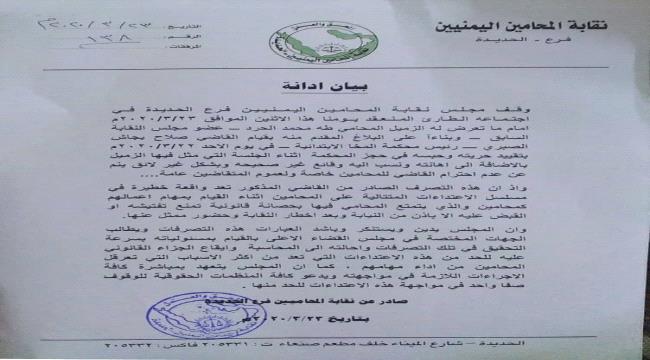 نقابة المحامين اليمنيين
فرع - الحديدة
التاريخ: ٢٠٢٠/٣/٢٣م
الرقم: ١٣٨
المرفقات:
بيان ادانة
وقف مجلس نقابة المحامين اليمنيين فرع الحديدة في
اجتماعه الطارئ المنعقد يومنا هذا الاثنين الموافق ٢٠٢٠/٣/٢٣م
امام ما تعرض له الزميل المحامي طه محمد الحرد - عضو مجلس النقابة
السابق - وبناءاً على البلاغ المقدم منه بقيام القاضي صلاح بجاش
الصبري - رئيس محكمة المخا الابتدائية - في يوم الاحد ٢٠٢٠/٣/٢٢م
بتقييد حريته وحبسه في حجز المحكمة اثناء الجلسة التي مثل فيها الزميل
بالاضافة الى اهانته ونسب اليه وقائع غير صحيحه وبشكل غير لائق ينم
عن عدم احترام القاضي للمحامين خاصة ولعموم المتقاضين عامة....
واذ ان هذه التصرف الصادر من القاضي المذكور تعد واقعة خطيرة في
مسلسل الاعتداءات المتتالية على المحامين اثناء القيام بمهام اعمالهم
كمحامين والذي يتمتع المحامي فيها بحصانة قانونية تمنع تفتيشه او
القبض عليه الا باذن من النيابة وبعد اخطار النقابة وحضور ممثل عنها.
وان المجلس يدين ويستنكر وباشد العبارات هذه التصرفات ويطالب
الجهات المختصة في مجلس القضاء الاعلى بالقيام بمسئولياته بسرعة
التحقيق في تلك التصرفات واحالته الى المحاسبة وإيقاع الجزاء القانوني
عليه للحد من هذه الاعتداءات التي تعد من اكثر الاسباب التي تعرقل
المحامين من اداء مهامهم . كما ان المجلس يتعهد بمباشرة كافة
الاجراءات اللازمة في مواجهته ويدعو كافة المنظمات الحقوقية للوقوف
صفا واحد في مواجهة هذه الاعتداءات للحد منها .
صادر عن نقابة المحاميين فرع الحديدة
بتاريخ ٢٠٢٠/٣/٢٣م
الحديدة - شارع الميناء خلف مطعم صنعاء ت: ٢٠٥٣٣١ فاكس: ٢٠٥٣٣٢